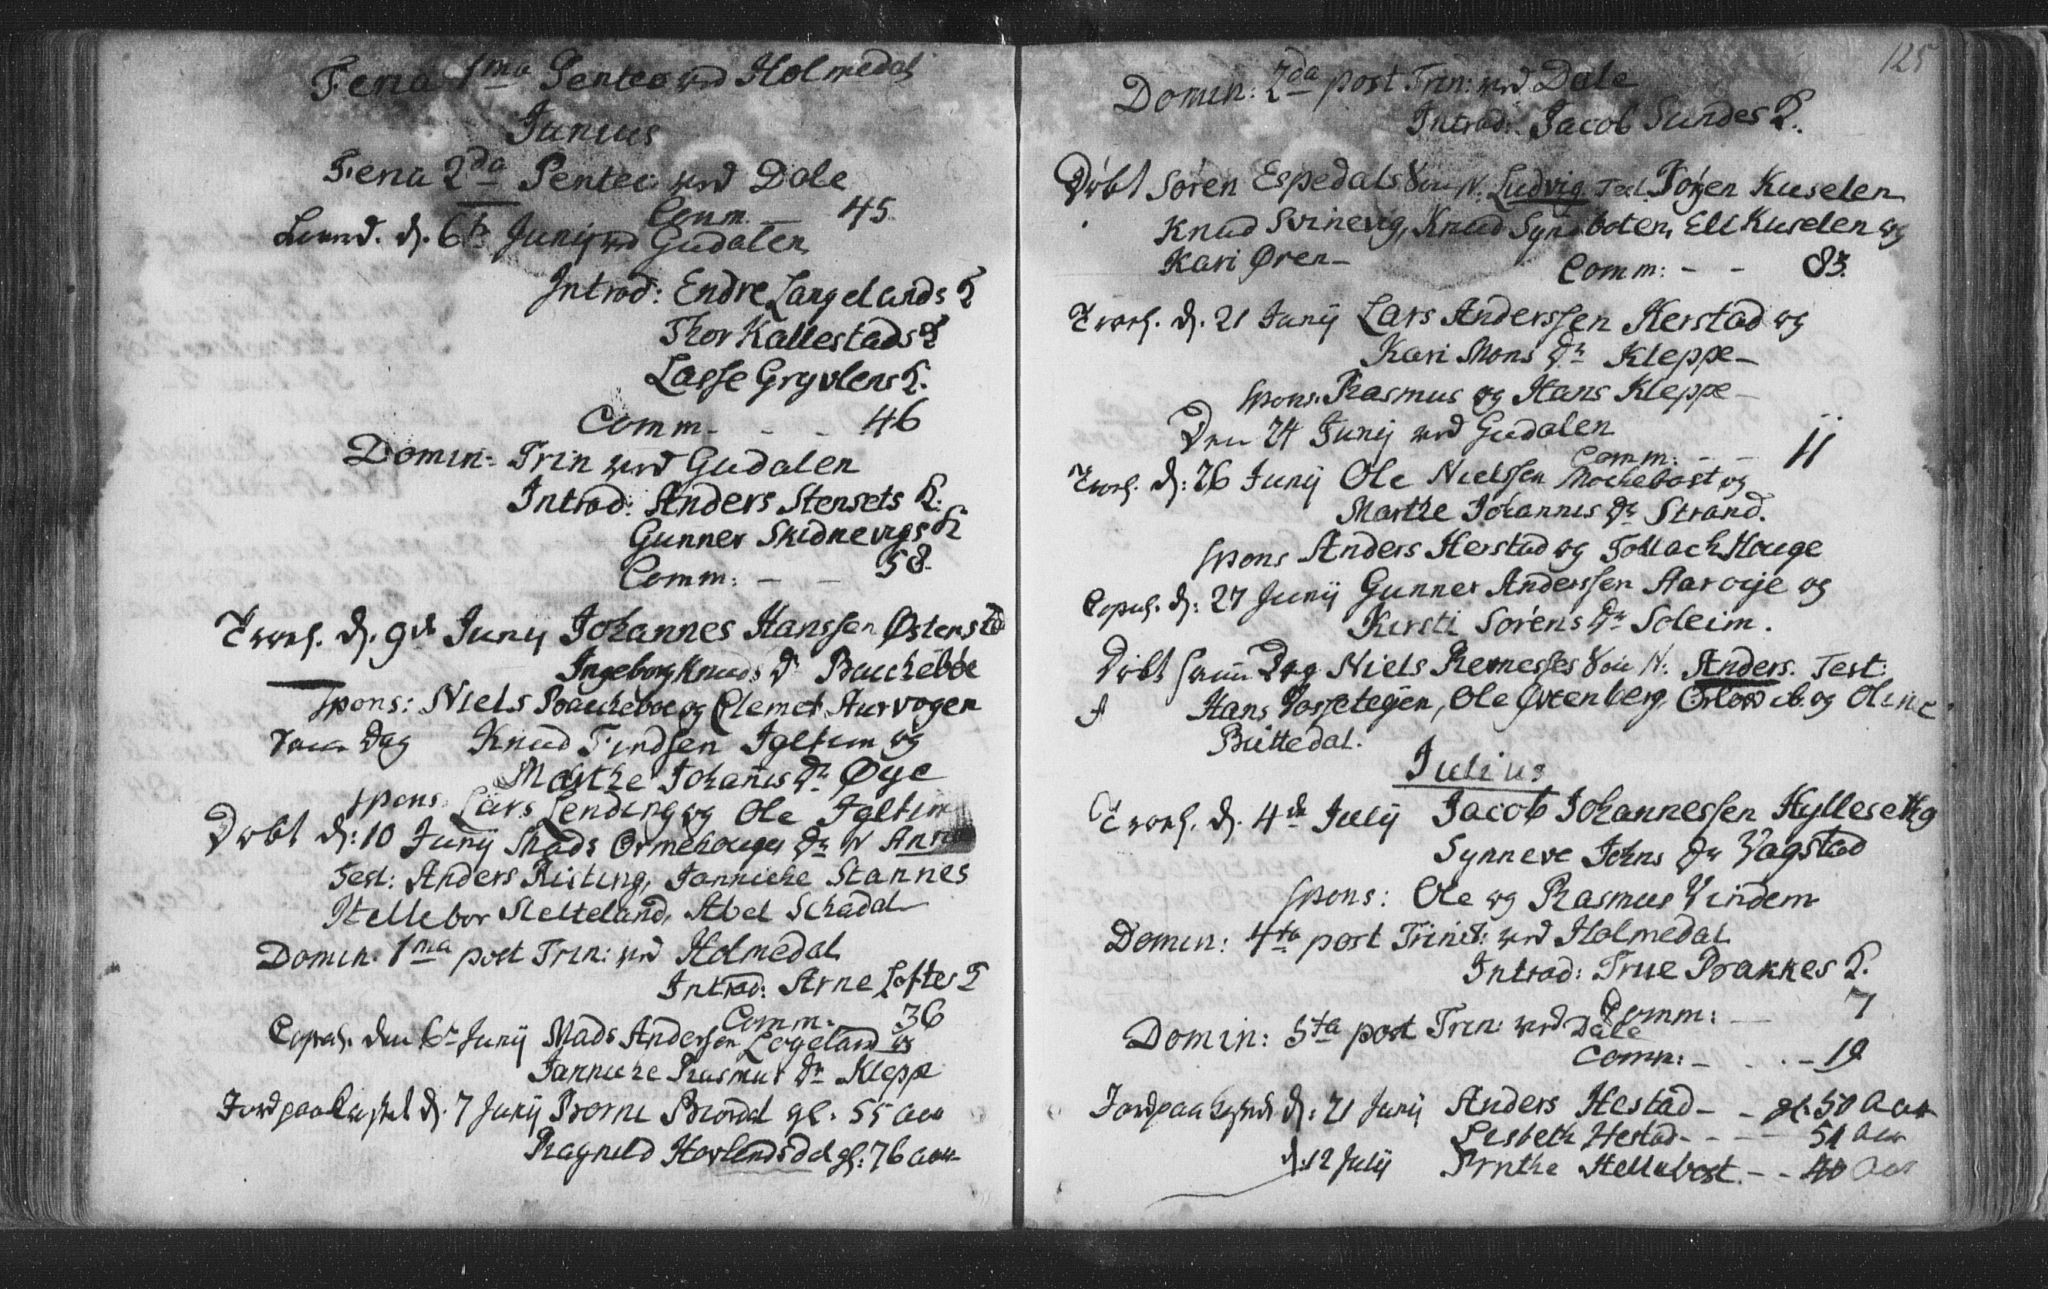 Feria 1ma Pentec: ved Holmedal
Junius
Feria 2da Pentec: ved Dale
Comm. — 45.
d. 6te Junij ved Gudalen
Introd: Endre Langelands K
Thor Kallestads K
Lasse Gryvlens K.
Comm - - - 46
Domin: Trin ved Gudalen
Introd: Anders Stensets K.
Gunner Skidnevigs K
Comm: — — 58.
Trool. d. 9de Junij Johannes Hanssen Østenstad
Ingeborg Knuds D. Bacheboe
Spons: Niels Bacheboe og Clemet Aurvogen
Dag Knud Findsen Igltun og
Marthe Johannis Dr. Øye
Spons. Lars Lending og Ole Igltun
Døbt d: 10 Junij Mads Ormehouges Dr. N Anna
Test: Anders Risting, Jannicke Stannes
Hellebor Sletteland, Abel Schadal
Domin. 1ma post Trin: ved Holmedal
Introd: Arne Loftes K
Comm: 36
Copul. den 6te Junij Mads Anderssen Legeland og
Jannicke Rasmus Dr. Kleppe
Jordpaakastet d. 7 Junij Børne Biordal gl. 55 Aar
Ragnild Hovlandsdal gl: 76 Aar
125
Domin: 2da post Trin: ved Dale
Introd: Jacob Sundes K.
Døbt Søren Espedals Søn N. Ludvig Test. Kuselen
Knud Svinevig, Knud Synsboten, Eli Kuselen og
Kari Øren —
Comm: - - 83.
Trool. d. 21 Junij Lars Anderssen Herstad og
Kari Mons Dr. Kleppe —
Spons. Rasmus og Hans Kleppe —
Den 24 Junij ved Gudalen
Comm: - - 11
Trool. d: 26 Junij Ole Nielssen Mochebost og
Marthe Johannis Dr. Strand.
Spons Anders Herstad og Tollach Houge
Copul. d: 27 Junij Gunner Anderssen Aarøije og
Kirsti Sørens Dr. Soleim.
Døbt samme Dag Niels Remesses Søn N: Anders. Test:
Hans, Ole Øvrenberg, og Oline
Buttedal.
Julius
Trool. d. 4de Julij Jacob Johannessen Hylleset og
Synneve Johns Dr. Vagstad
Spons: Ole og Rasmus Vindem
Domin: 4ta post Trinit: ved Holmedal
Introd: True Bakkes K.
Comm: — 7
Domin: 5ta post Trin: ved Dale
Comm: - - - 19
Jordpaakastet d: 21 Junij Anders Hestad - - gl. 50 Aar
Lisbeth Hestad - - - 51 Aar
d: 12 Julij Brythe Hellebost - - 40 Aar